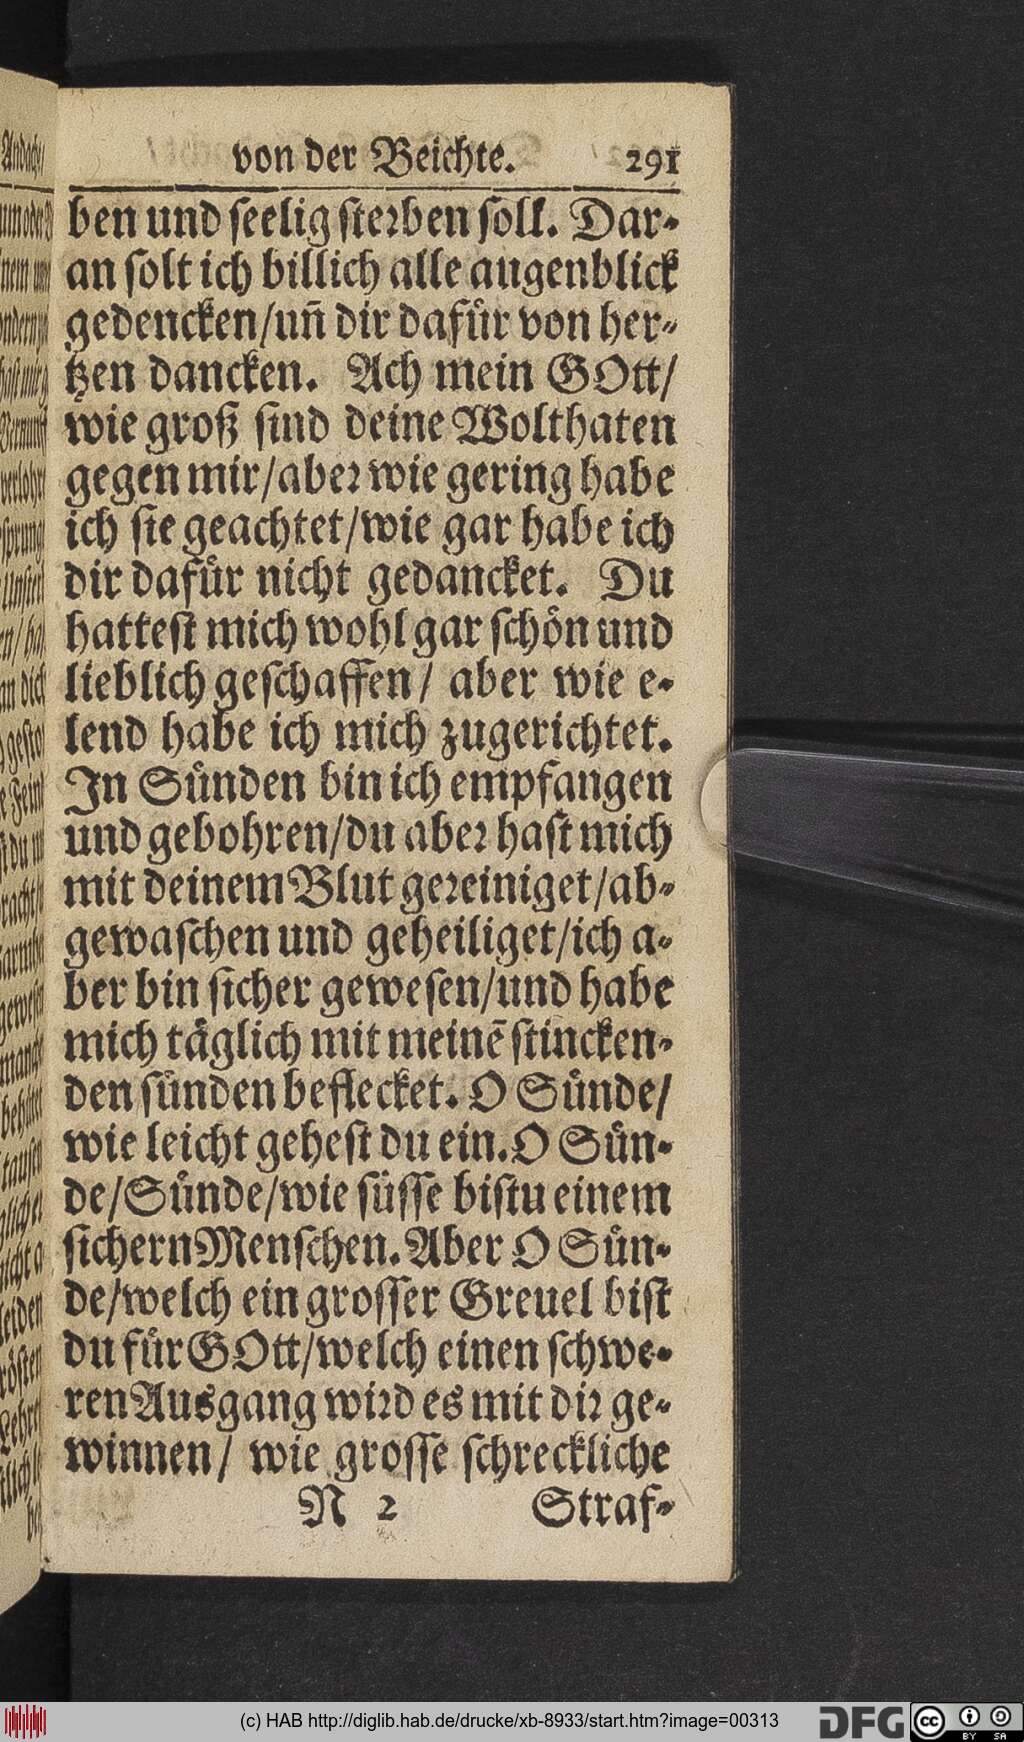 von der Beichte. 291
ben und seelig sterben soll. Dar-
an solt ich billich alle augenblick
gedencken/uñ dir dafür von her-
tzen dancken. Ach mein GOtt/
wie groß sind deine Wolthaten
gegen mir/aber wie gering habe
ich sie geachtet/wie gar habe ich
dir dafür nicht gedancket. Du
hattest mich wohl gar schön und
lieblich geschaffen/ aber wie e-
lend habe ich mich zugerichtet.
In Sünden bin ich empfangen
und gebohren/du aber hast mich
mit deinem Blut gereiniget/ab-
gewaschen und geheiliget/ich a-
ber bin sicher gewesen/und habe
mich täglich mit meinē stincken-
den sünden beflecket. O Sünde/
wie leicht gehest du ein. O Sün-
de/Sünde/wie süsse bistu einem
sichern Menschen. Aber O Sün-
de/welch ein grosser Greuel bist
du für GOtt/welch einen schwe-
ren Ausgang wird es mit dir ge-
winnen/ wie grosse schreckliche
N 2 Straf-
(c) HAB http://diglib.hab.de/drucke/xb-8933/start.htm?image=00313
DFG cc BY SA